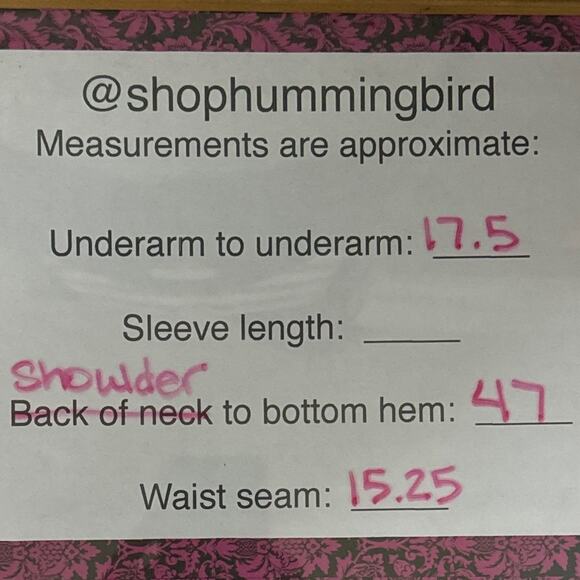 @shophummingbird
Measurements are approximate:
Underarm to underarm: 17.5
Sleeve length: ____
Shoulder
Back of neck to bottom hem: 47
Waist seam: 15.25